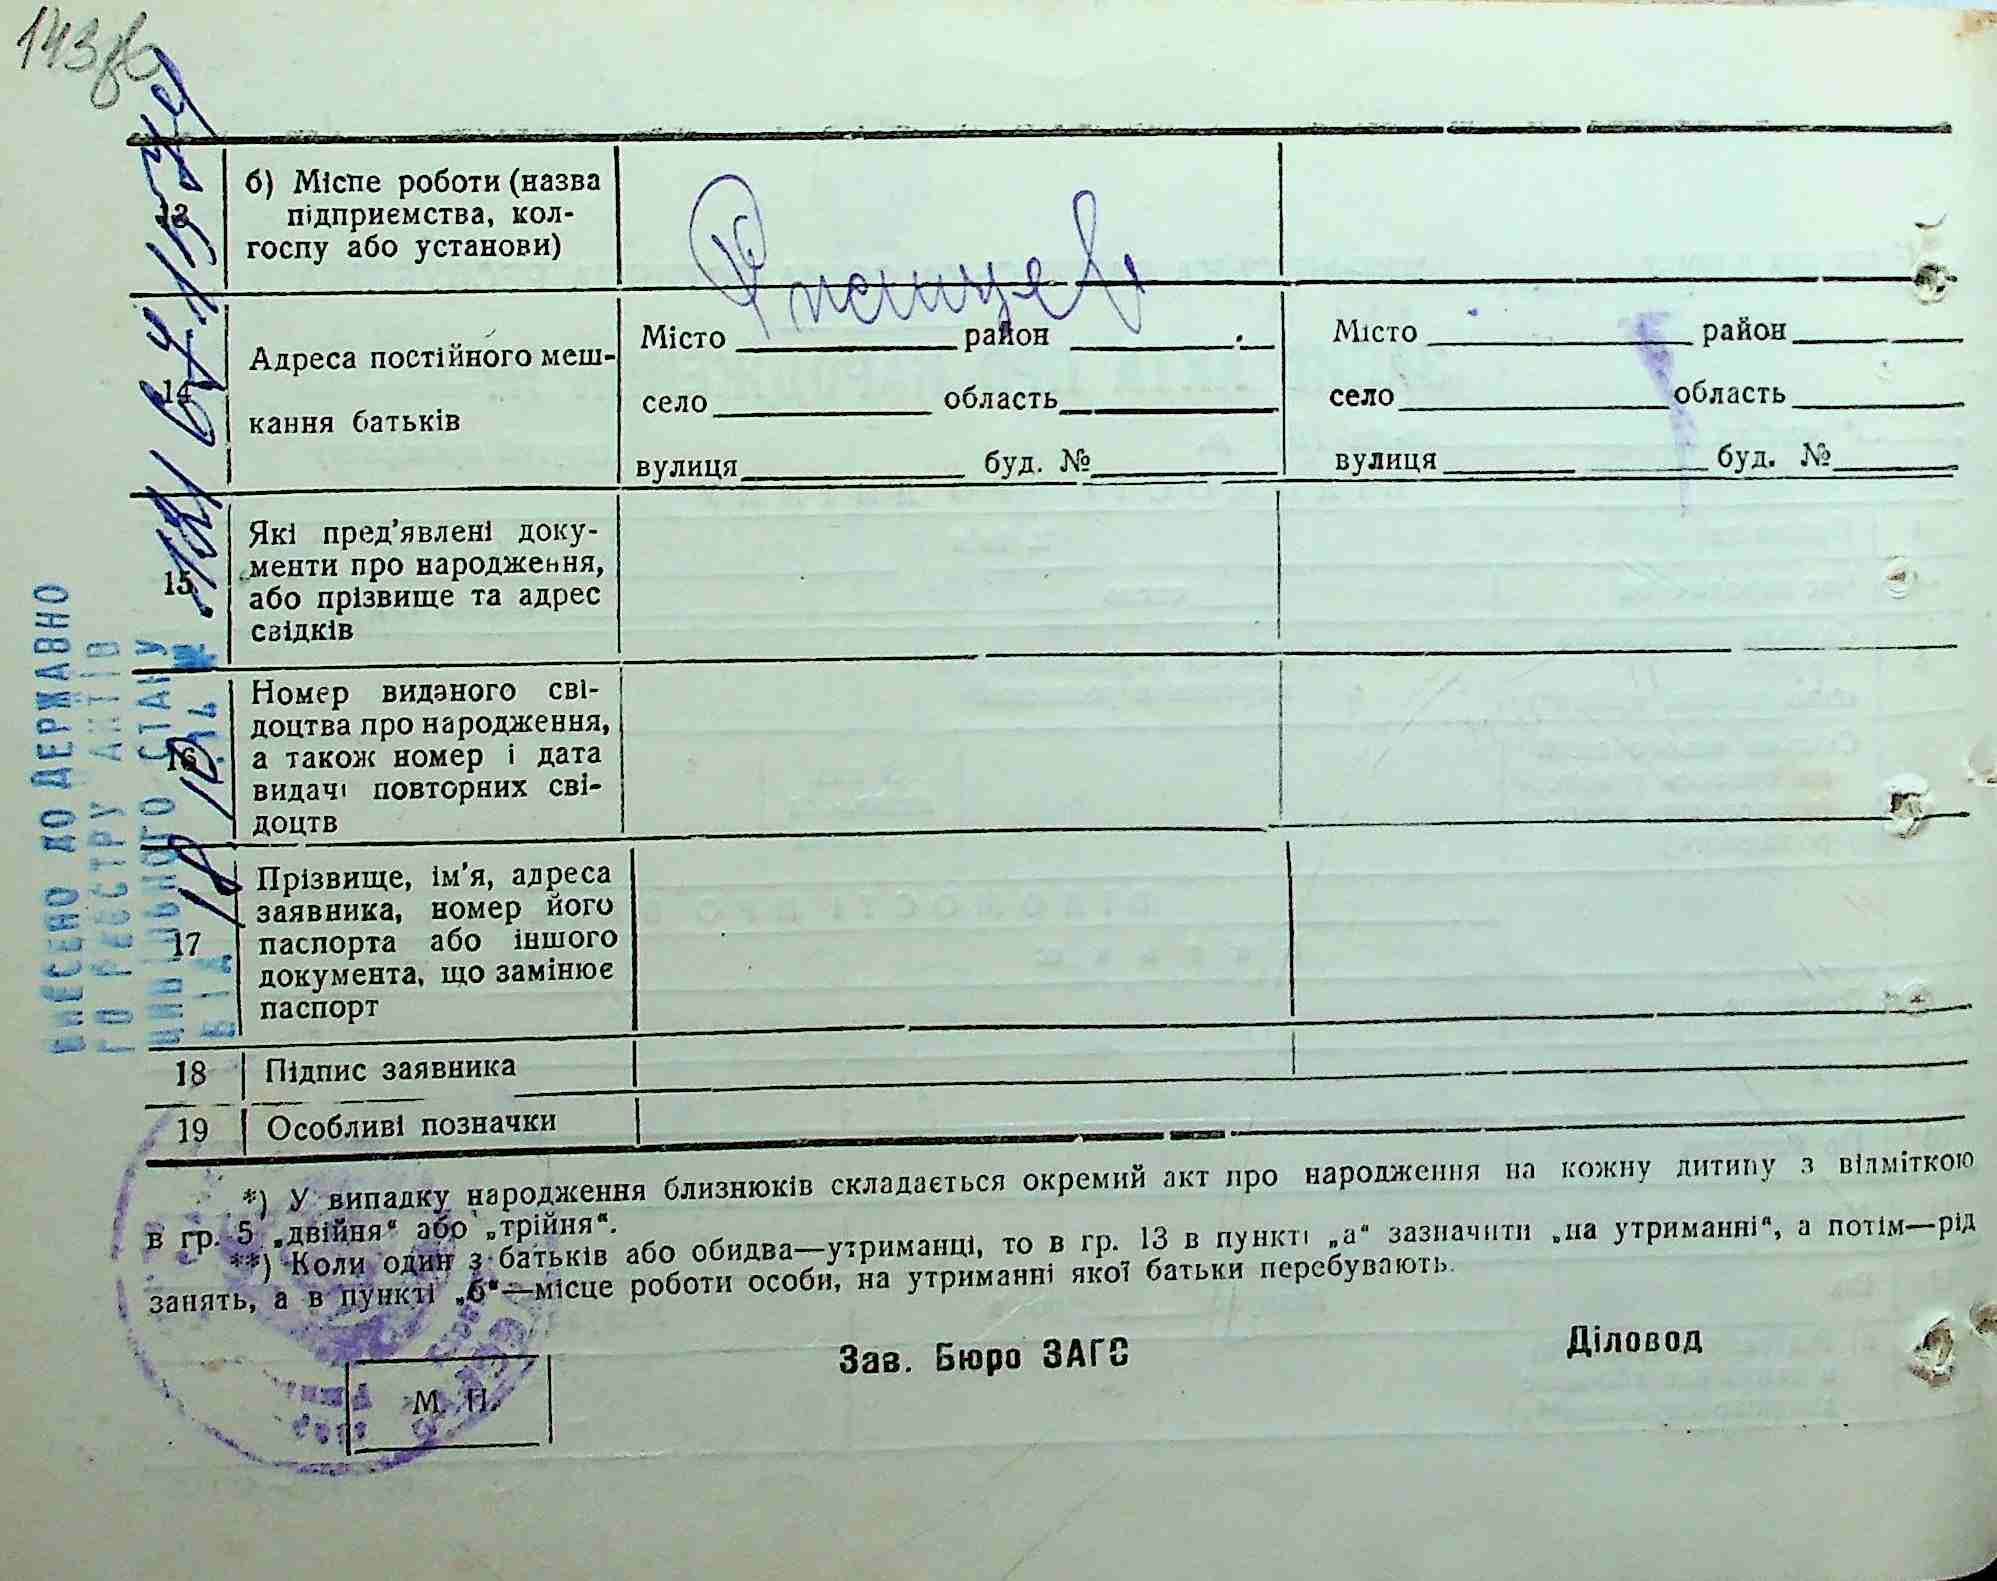 143
13
б) Місце роботи (назва
підприємства, кол-
госпу або установи)
14
Адреса постійного меш-
кання батьків
Місто район
село область
вулиця буд. №
Місто район
село область
вулиця буд. №
15
Які пред’явлені доку-
менти про народження,
або прізвище та адрес
свідків
16
Номер виданого сві-
доцтва про народження,
а також номер і дата
видачі повторних сві-
доцтв
17
Прізвище, ім’я, адреса
заявника, номер його
паспорта або іншого
документа, що замінює
паспорт
18 Підпис заявника
19 Особливі позначки
*) У випадку народження близнюків складається окремий акт про народження на кожну дитину з відміткою
в гр. 5 „двійня“ або „трійня“.
**) Коли один з батьків або обидва—утриманці, то в гр. 13 в пункті „а“ зазначити „на утриманні“, а потім—рід
занять, а в пункті „б“—місце роботи особи, на утриманні якої батьки перебувають.
М. П.
Зав. Бюро ЗАГС
Діловод
ВНЕСЕНО ДО ДЕРЖАВНО
ГО РЕЄСТРУ АКТІВ
ЦИВІЛЬНОГО СТАНУ
ВІД №